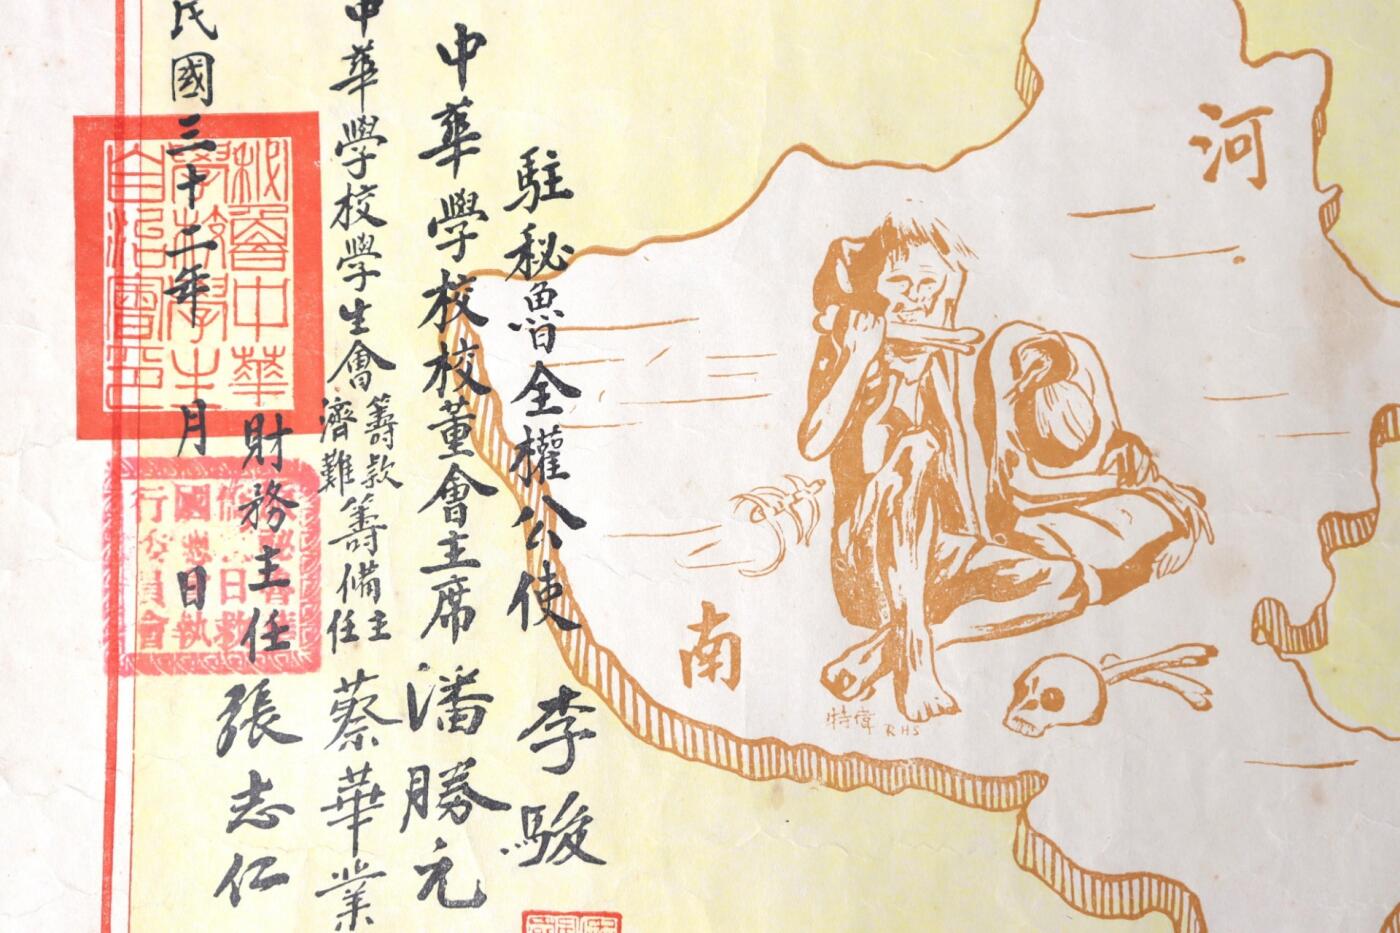 駐秘魯全權公使 李駿
中華學校校董會主席 潘勝元
中華學校學生會籌款濟難籌備主任 蔡華業
財務主任 張志仁
民國三十二年 月 日
秘魯中華
學校學生
自治會印
河
南
特偉 RHS